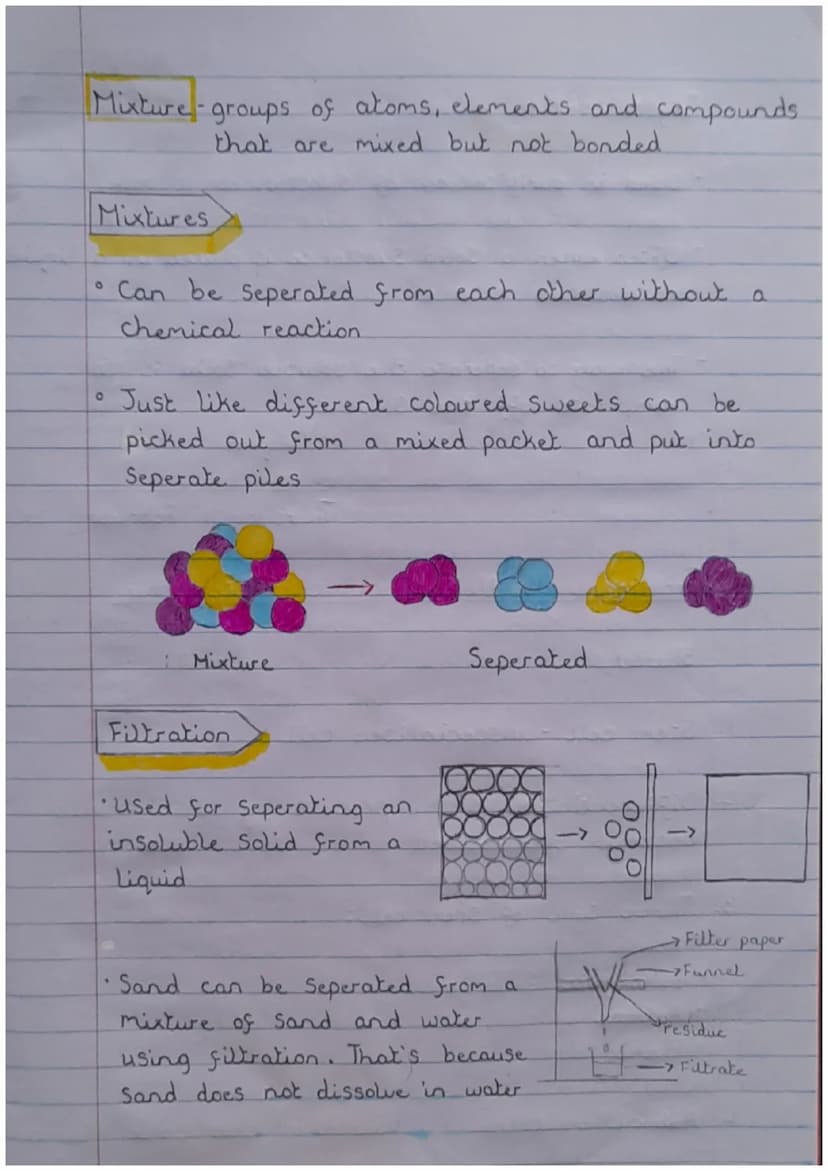 Mixture - groups of atoms, elements and compounds
that are mixed but not bonded
Mixtures
• Can be seperated from each other without a
chemical reaction
• Just like different coloured sweets can be
picked out from a mixed packet and put into
Seperate piles
Mixture
Seperated
Filtration
• used for seperating an
insoluble solid from a
liquid
• Sand can be seperated from a
mixture of sand and water
using filtration. That's because
sand does not dissolve in water
Filter paper
Funnel
residue
Filtrate